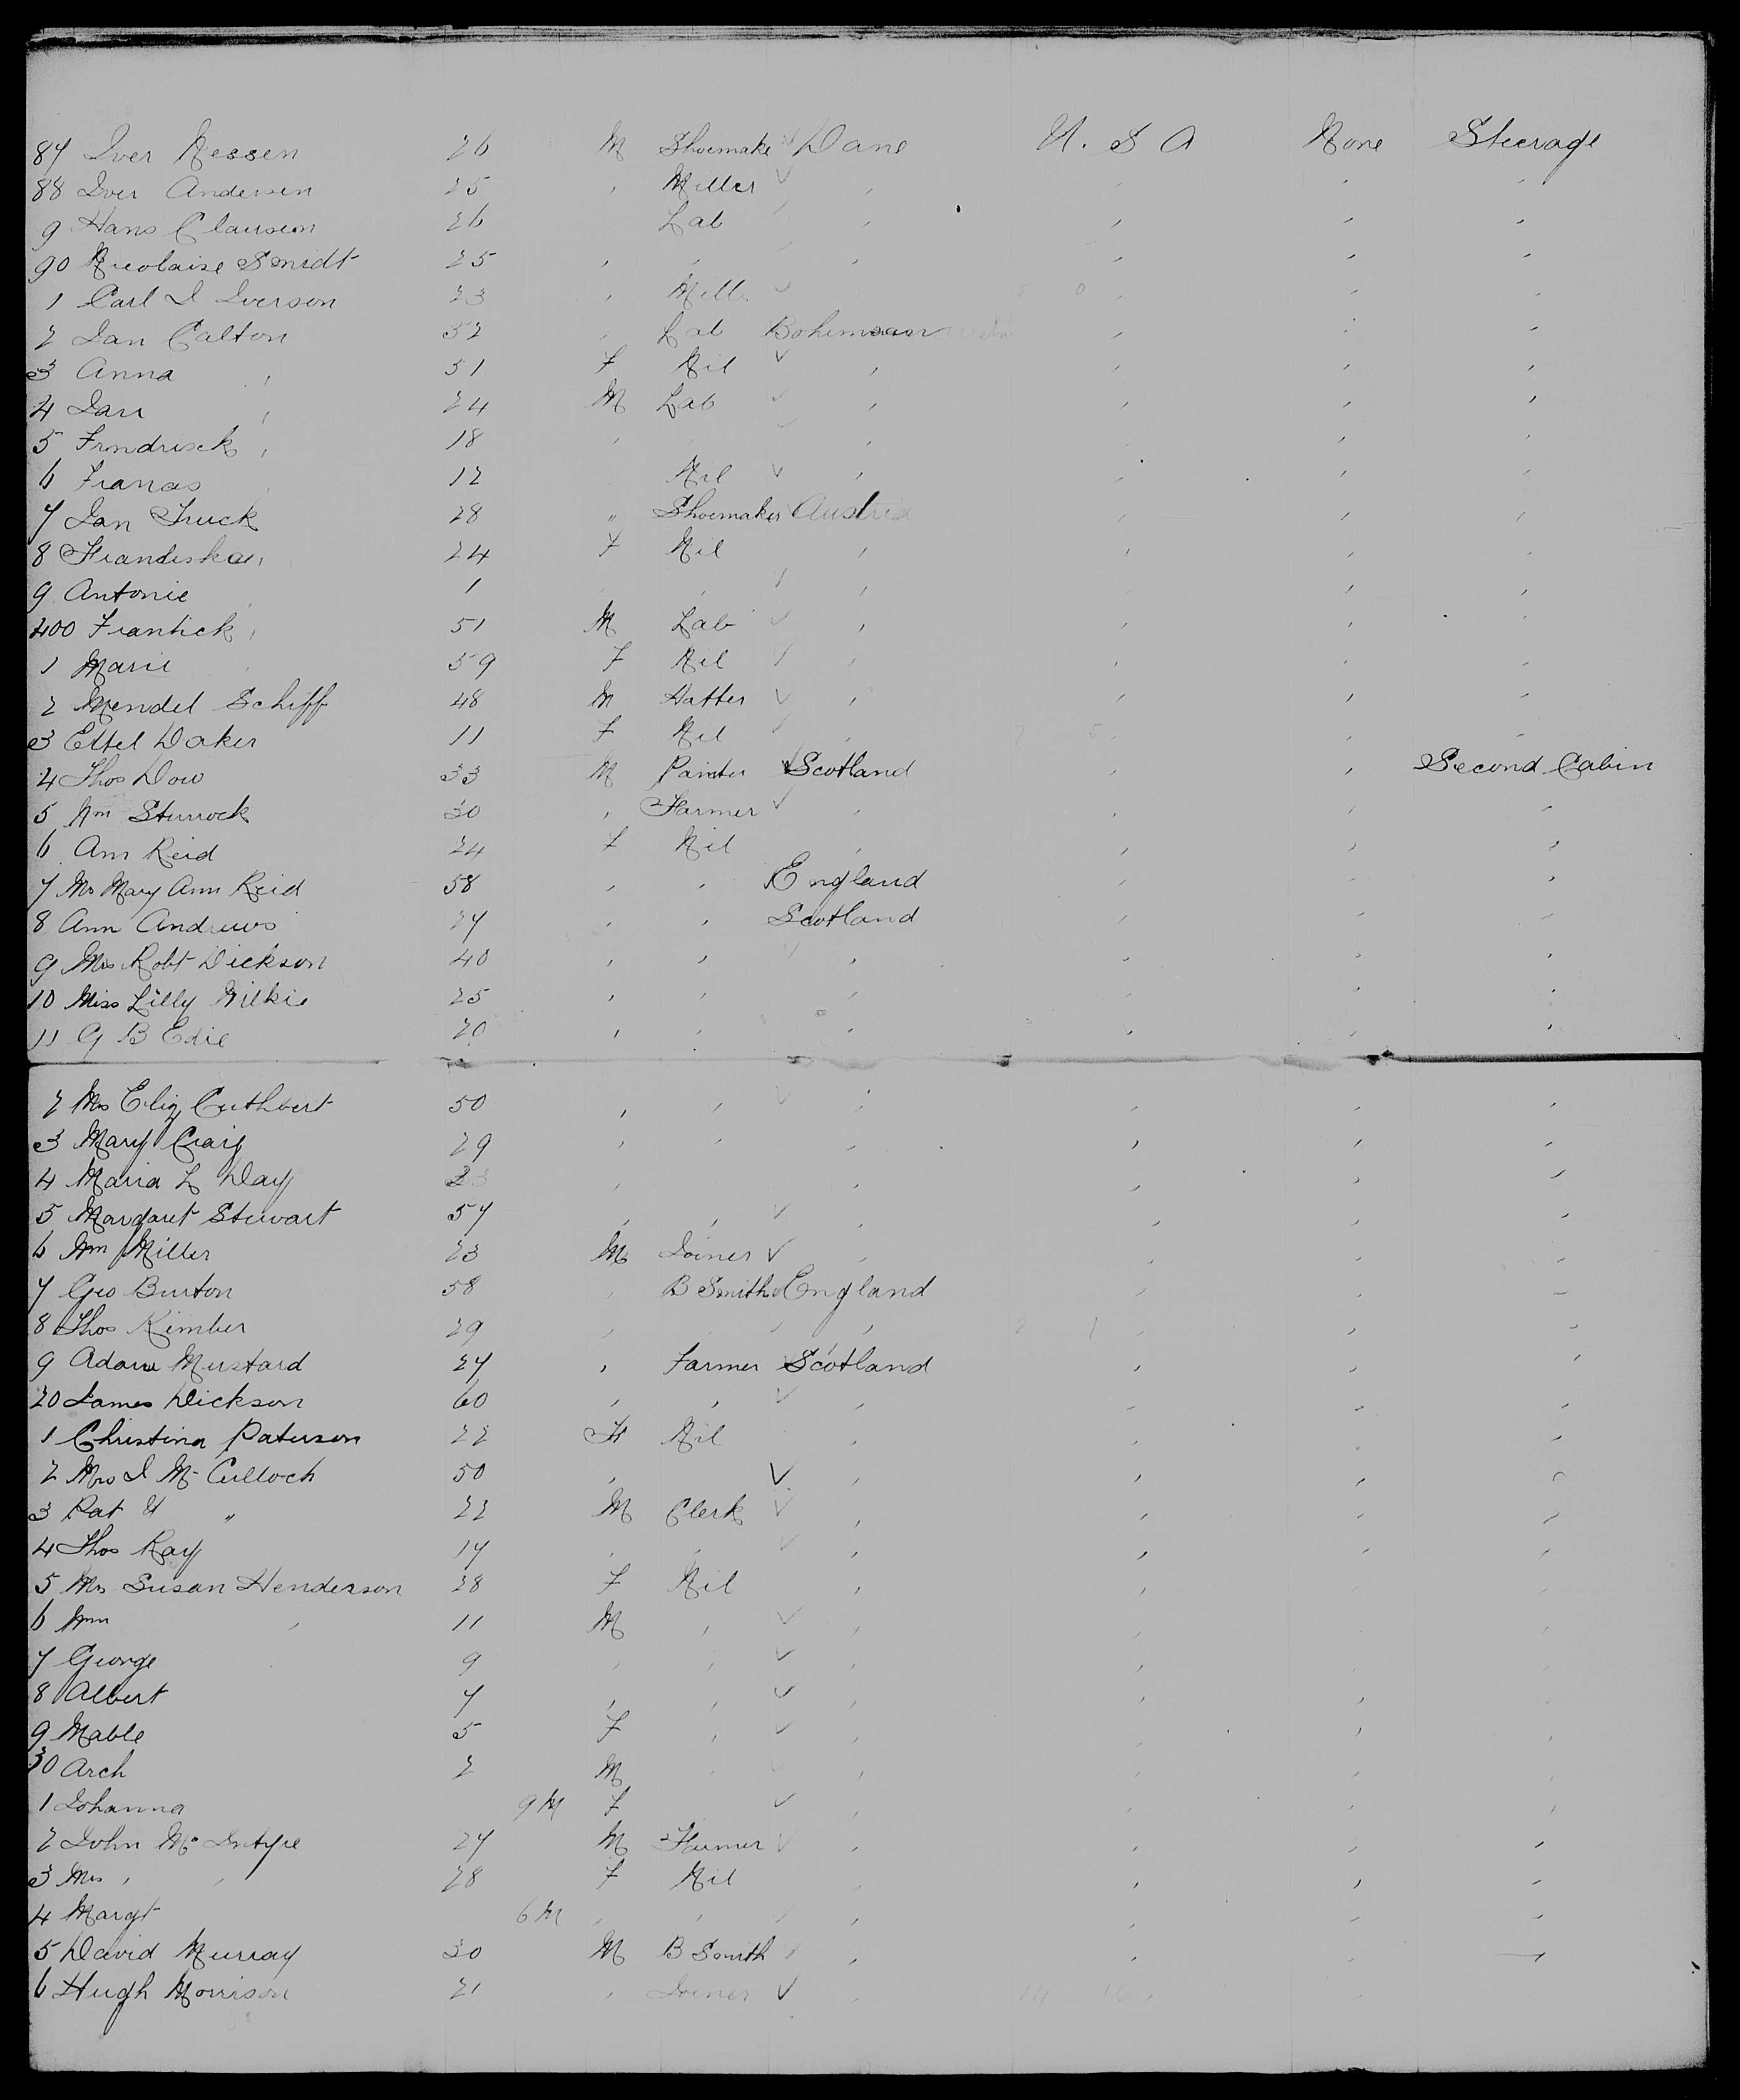 87 Iver Nessen 26 M Shoemake Dane U. S A None Steerage
88 Iver Andersen 25 " Miller " " " "
9 Hans Clausen 26 Lab " " " "
90 Nicolaise Smidt 25 " " " " " "
1 Carl I Iverson 23 " Mill " " "
2 Jan Calton 52 " Lab Bohemian " " "
3 Anna " 51 F Nil " " " "
4 Jan " 24 M Lab " " " "
5 Frndrisek " 18 " " " " "
6 Francis 12 Nil " " " "
7 Jan Truck 28 " Shoemaker Austria " " "
8 Frandiska " 24 F Nil " " " "
9 Antonie " 1 " " " "
400 Frantick " 51 M Lab " " " "
1 Marie " 59 F Nil " " " "
2 Mendel Schiff 48 M Hatter " " " "
3 Ettel Daker 11 F Nil " " " "
4 Thos Dow 33 M Painter Scotland " " Second Cabin
5 Wm Sturrock 30 " Farmer " " " "
6 Ann Reid 24 F Nil " " " "
7 Mrs Mary Ann Reid 58 " " England " " "
8 Ann Andrews 27 " " Scotland " " "
9 Mrs Robt Dickson 40 " " " " " "
10 Miss Lilly Wilkie 25 " " " " " "
11 G B Edie 20 " " " " " "
2 Mrs Eliz Cuthbert 50 " " " " " "
3 Mary Craig 29 " " " " " "
4 Maria L Day 23 " " " " "
5 Margaret Stewart 57 " " " " " "
6 Wm Miller 23 M Joiner " " " "
7 Geo Burton 58 " B Smith England " " "
8 Thos Kimber 29 " " " " " "
9 Adam Mustard 27 " Farmer Scotland " " "
20 James Dickson 60 " " " " " "
1 Christina Paterson 22 F Nil " " " "
2 Mrs J Mc Culloch 50 " " " " "
3 Pat H " 22 M Clerk " " " "
4 Thos Ray 17 " " " " " "
5 Mrs Susan Henderson 38 F Nil " " "
6 Wm " 11 M " " " "
7 George 9 " " " " "
8 Albert 7 " " " " " "
9 Mable 5 F " " " "
30 Arch 2 M " " " "
1 Johanna 9 M F " " " "
2 John Mc Intyre 27 M Farmer " " " "
3 Mrs " " 28 F Nil " " " "
4 Margt 6 M " " " " " "
5 David Murray 30 M B Smith " " " "
6 Hugh Morrison 21 " Joiner " " "